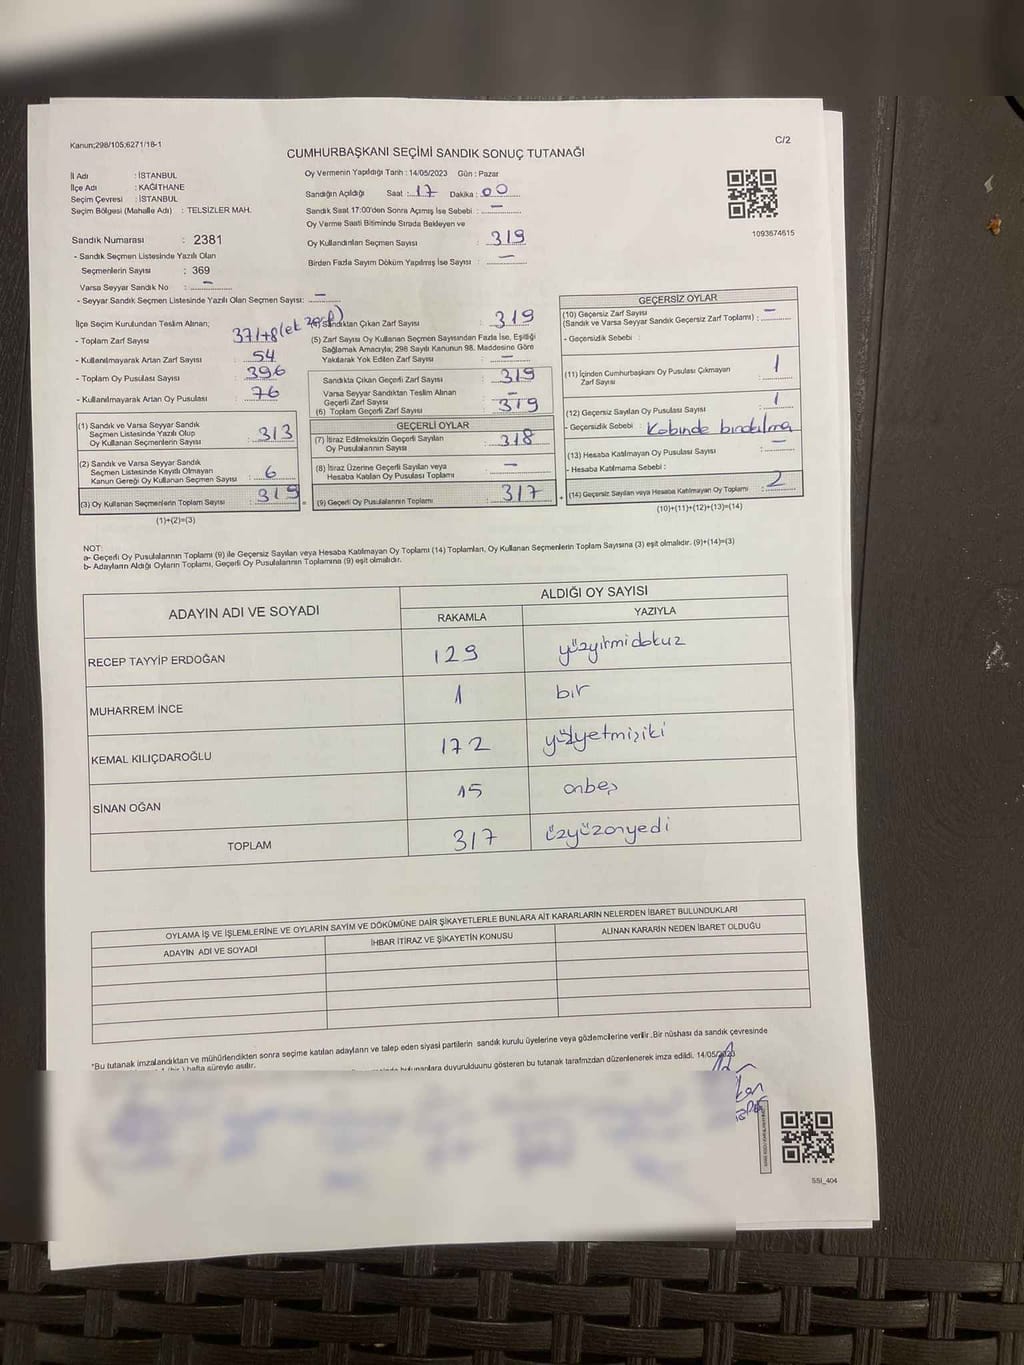 Kanun;298/105;6271/18-1
C/2
CUMHURBAŞKANI SEÇİMİ SANDIK SONUÇ TUTANAĞI
İl Adı : İSTANBUL
İlçe Adı : KAĞITHANE
Seçim Çevresi : İSTANBUL
Seçim Bölgesi (Mahalle Adı) : TELSİZLER MAH.
Sandık Numarası : 2381
- Sandık Seçmen Listesinde Yazılı Olan
Seçmenlerin Sayısı : 369
Varsa Seyyar Sandık No : —
- Seyyar Sandık Seçmen Listesinde Yazılı Olan Seçmen Sayısı: —
Oy Vermenin Yapıldığı Tarih : 14/05/2023 Gün : Pazar
Sandığın Açıldığı Saat : 17 Dakika : 00
Sandık Saat 17:00'den Sonra Açımış İse Sebebi : —
Oy Verme Saati Bitiminde Sırada Bekleyen ve
Oy Kullandırılan Seçmen Sayısı : 319
Birden Fazla Sayım Döküm Yapılmış İse Sayısı : —
1093674615
İlçe Seçim Kurulundan Teslim Alınan;
- Toplam Zarf Sayısı 371+8(ek zarf)
- Kullanılmayarak Artan Zarf Sayısı : 54
- Toplam Oy Pusulası Sayısı : 396
- Kullanılmayarak Artan Oy Pusulası : 76
(1) Sandık ve Varsa Seyyar Sandık
Seçmen Listesinde Yazılı Olup
Oy Kullanan Seçmenlerin Sayısı : 313
(2) Sandık ve Varsa Seyyar Sandık
Seçmen Listesinde Kayıtlı Olmayan
Kanun Gereği Oy Kullanan Seçmen Sayısı : 6
(3) Oy Kullanan Seçmenlerin Toplam Sayısı : 319
(1)+(2)=(3)
Sandıktan Çıkan Zarf Sayısı : 319
(5) Zarf Sayısı Oy Kullanan Seçmen Sayısından Fazla İse, Eşitliği
Sağlamak Amacıyla; 298 Sayılı Kanunun 98. Maddesine Göre
Yakılarak Yok Edilen Zarf Sayısı : —
Sandıkta Çıkan Geçerli Zarf Sayısı : 319
Varsa Seyyar Sandıktan Teslim Alınan
Geçerli Zarf Sayısı : —
(6) Toplam Geçerli Zarf Sayısı : 319
GEÇERLİ OYLAR
(7) İtiraz Edilmeksizin Geçerli Sayılan
Oy Pusulalarının Sayısı : 318
(8) İtiraz Üzerine Geçerli Sayılan veya
Hesaba Katılan Oy Pusulası Toplamı : —
(9) Geçerli Oy Pusulalarının Toplamı : 317
GEÇERSİZ OYLAR
(10) Geçersiz Zarf Sayısı
(Sandık ve Varsa Seyyar Sandık Geçersiz Zarf Toplamı) : —
- Geçersizlik Sebebi :
(11) İçinden Cumhurbaşkanı Oy Pusulası Çıkmayan
Zarf Sayısı : 1
(12) Geçersiz Sayılan Oy Pusulası Sayısı : 1
- Geçersizlik Sebebi : Kabinde bındılma
(13) Hesaba Katılmayan Oy Pusulası Sayısı : —
- Hesaba Katılmama Sebebi :
(14) Geçersiz Sayılan veya Hesaba Katılmayan Oy Toplamı : 2
(10)+(11)+(12)+(13)=(14)
NOT:
a- Geçerli Oy Pusulalarının Toplamı (9) ile Geçersiz Sayılan veya Hesaba Katılmayan Oy Toplamı (14) Toplamları, Oy Kullanan Seçmenlerin Toplam Sayısına (3) eşit olmalıdır. (9)+(14)=(3)
b- Adayların Aldığı Oyların Toplamı, Geçerli Oy Pusulalarının Toplamına (9) eşit olmalıdır.
ADAYIN ADI VE SOYADI
ALDIĞI OY SAYISI
RAKAMLA YAZIYLA
RECEP TAYYİP ERDOĞAN 129 yüzyirmidokuz
MUHARREM İNCE 1 bir
KEMAL KILIÇDAROĞLU 172 yüzyetmişiki
SİNAN OĞAN 15 onbeş
TOPLAM 317 üçyüzonyedi
OYLAMA İŞ VE İŞLEMLERİNE VE OYLARIN SAYIM VE DÖKÜMÜNE DAİR ŞİKAYETLERLE BUNLARA AİT KARARLARIN NELERDEN İBARET BULUNDUKLARI
ADAYIN ADI VE SOYADI İHBAR İTİRAZ VE ŞİKAYETİN KONUSU ALINAN KARARIN NEDEN İBARET OLDUĞU
*Bu tutanak imzalandıktan ve mühürlendikten sonra seçime katılan adayların ve talep eden siyasi partilerin sandık kurulu üyelerine veya gözlemcilerine verilir. Bir nüshası da sandık çevresinde
1 (bir) hafta süreyle asılır.
bulunanlara duyurulduunu gösteren bu tutanak tarafımzdan düzenlenerek imza edildi. 14/05/2023
SSI_404